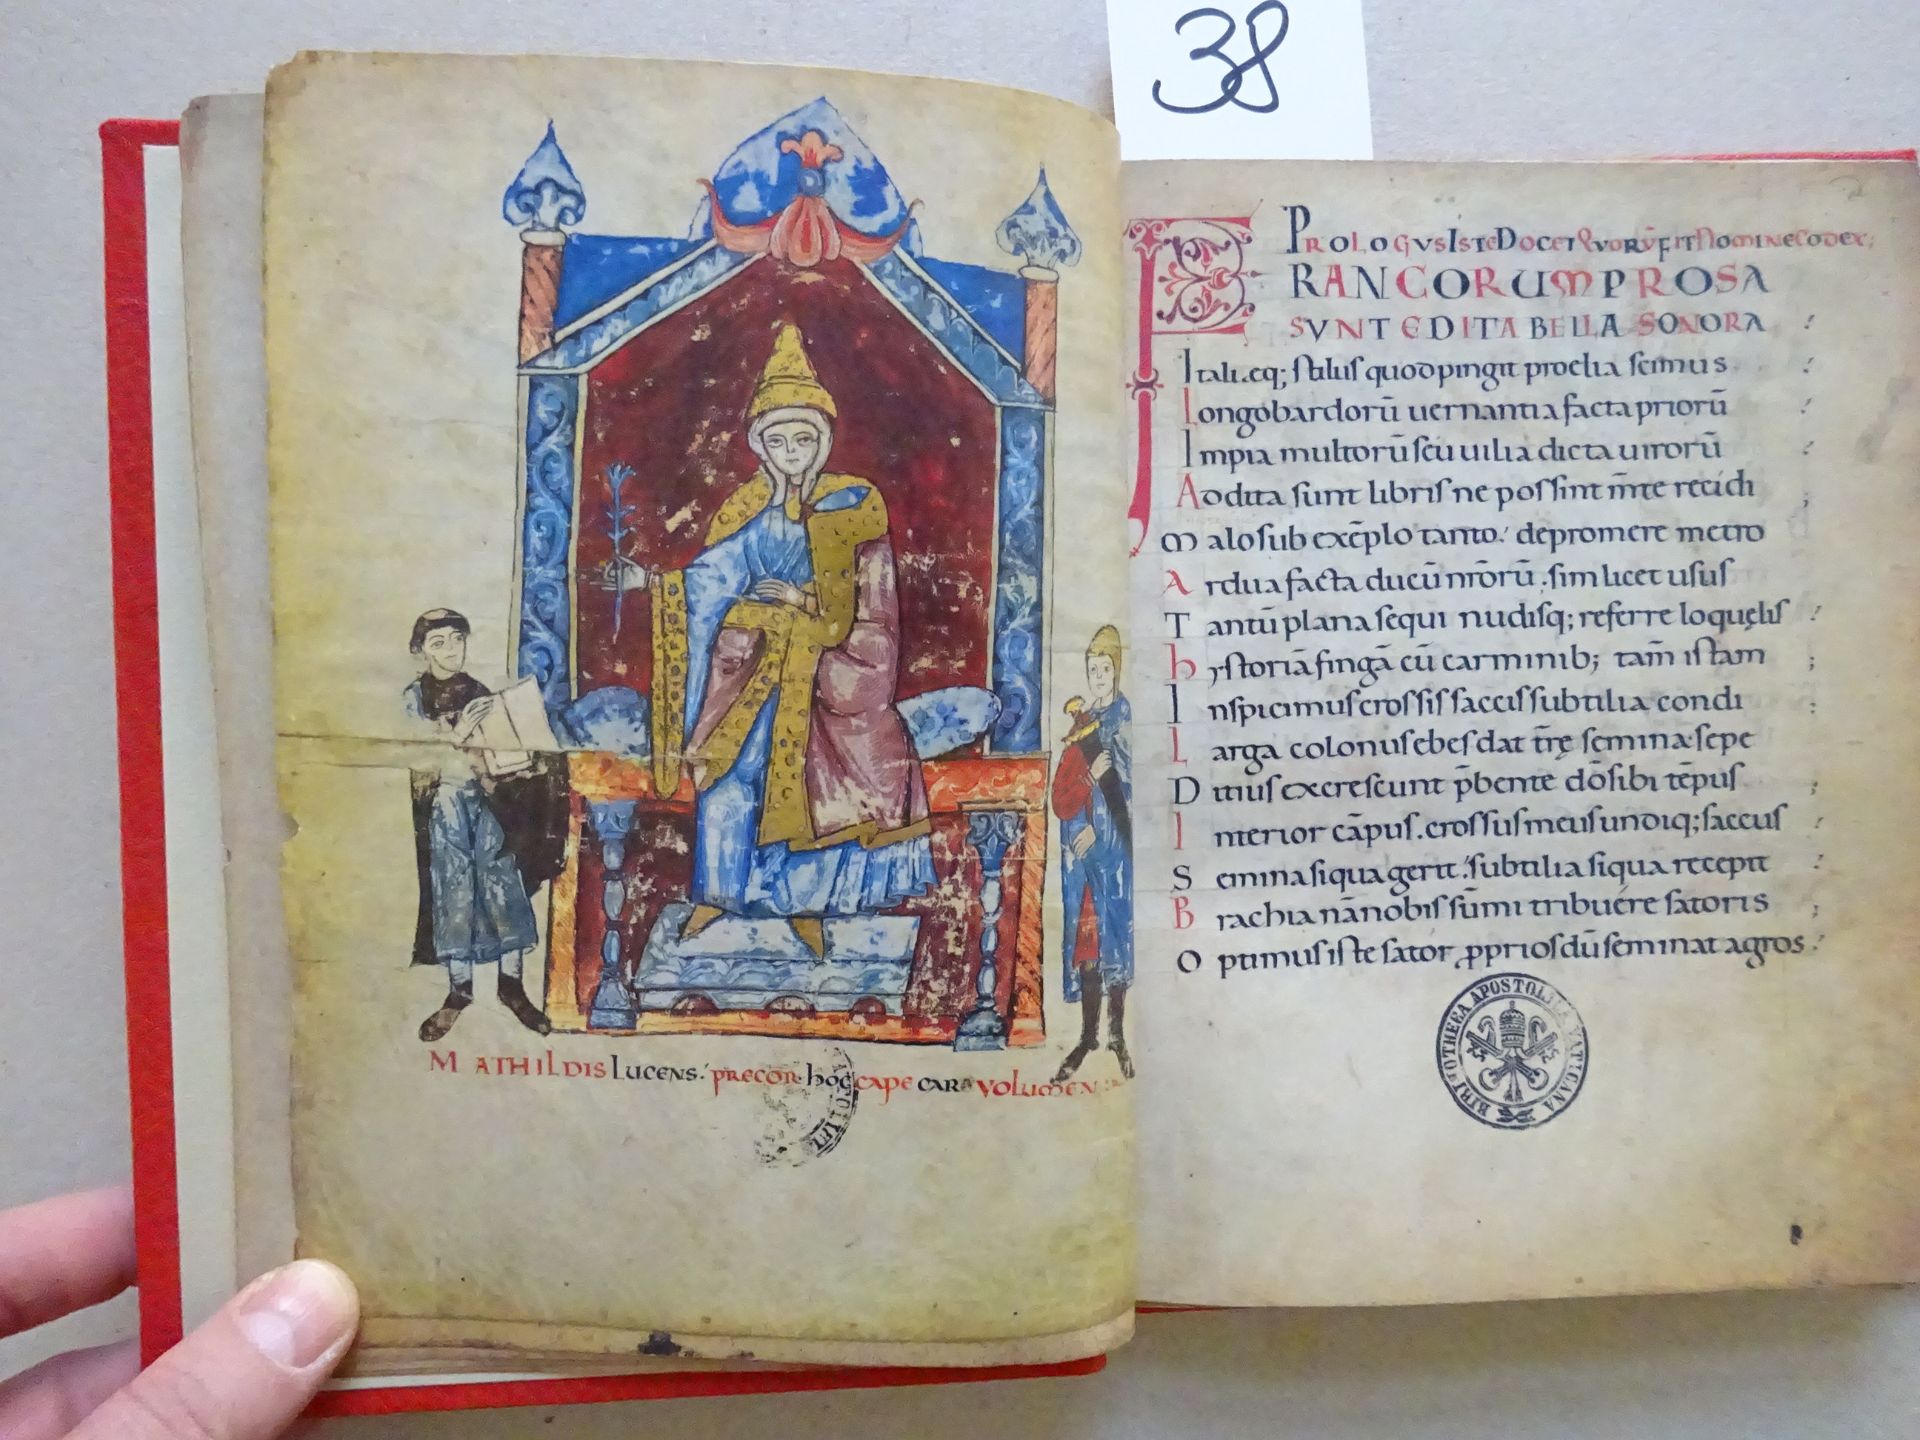 38
MATHILDIS LUCENS. PRECOR hoc CAPE CARA VOLUMEN
PROLOGVS ISTE DOCET QVORV̄ FIT NOMINE CODEX;
FRANCORUM PROSA
SVNT EDITA BELLA SONORA
Itali.cq; stilus quod pingit proelia scimus
Longobardorū uernantia facta priorū
Impia multorū seu uilia dicta uirorū
Addita sunt libris ne possint m̄te recidi ;
Malo sub exēplo tanto. depromere metro
Ardua facta ducū nr̄orū. sim licet usus
Tantū plana sequi nudisq; referre loquęlis
hystoriā fingā cū carminib; tam̄ istam ;
Inspicimus crossis saccis subtilia condi
Larga colonus ebes dat tr̄ę semina sepe
Ditius excrescunt p̄bente dō sibi tēpus ;
Interior cāpus. crossus meus undiq; saccus
Semina siqua gerit. subtilia siqua recepit
Brachia nā nobis sūmi tribuére satoris ;
Optimus iste sator ꝓprios dū seminat agros
BIBLIOTHECA APOSTOLICA VATICANA